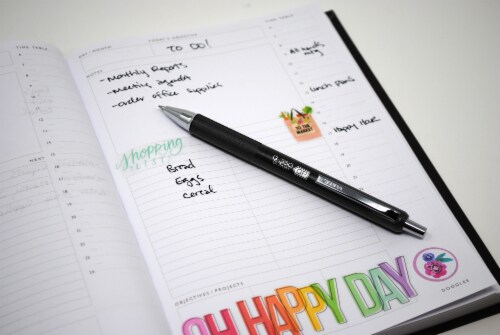 TIME TABLE
DAY | MONTH
TODAY'S OBJECTIVE
TIME TABLE
TO DO!
NOTES
- Monthly Reports
- Meeting agenda
- Order office supplies
All hands
mtg
lunch plans
Happy Hour
TO THE
MARKET
Shopping
LIST
Bread
Eggs
cereal
OBJECTIVES | PROJECTS
OH HAPPY DAY
DOODLES